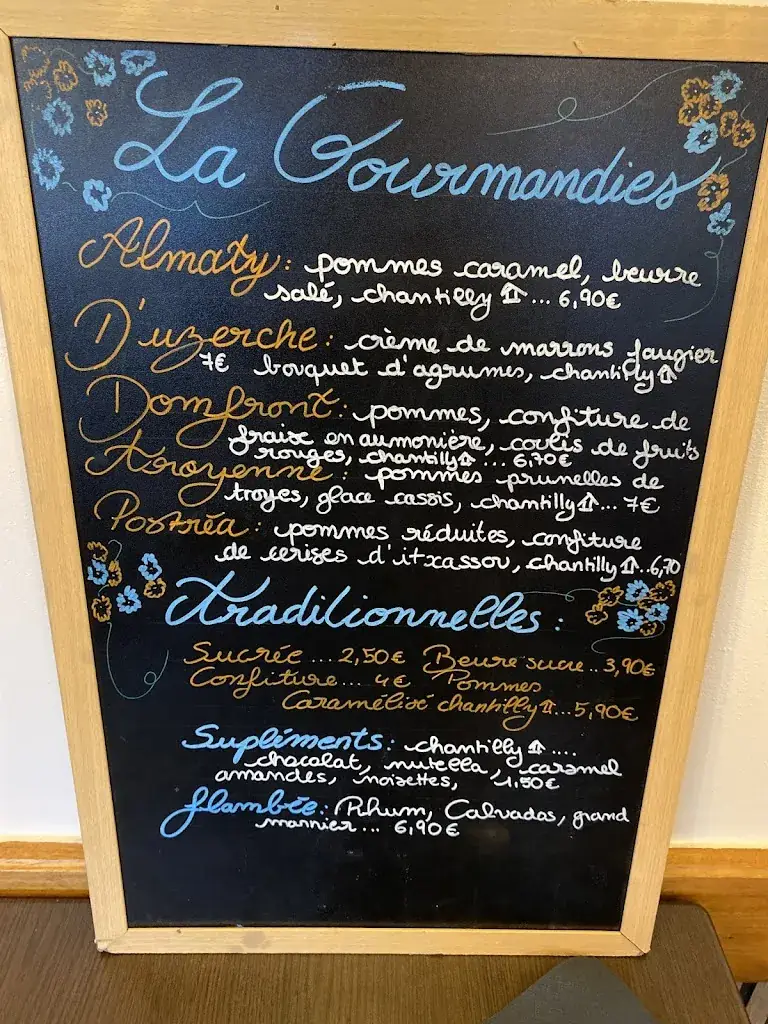 La Gourmandies
Almaty : pommes caramel, beurre
salé, chantilly ... 6,90€
D'uzerche : crème de marrons faugier
7€ bouquet d'agrumes, chantilly
Domfront : pommes, confiture de
fraise en aumonière, coulis de fruits
rouges, chantilly ... 6,70€
Troyenne : pommes prunelles de
troyes, glace cassis, chantilly ... 7€
Postréa : pommes réduites, confiture
de cerises d'itxassou, chantilly ..6,70
Traditionnelles :
Sucrée ... 2,50€ Beure sucre.. 3,90€
Confiture... 4€ Pommes
Caramélisé chantilly ...5,90€
Supléments : chantilly ....
chocolat, nutella, caramel
amandes, noisettes, 1,50€
flambée : Rhum, Calvados, grand
marnier ... 6,90€